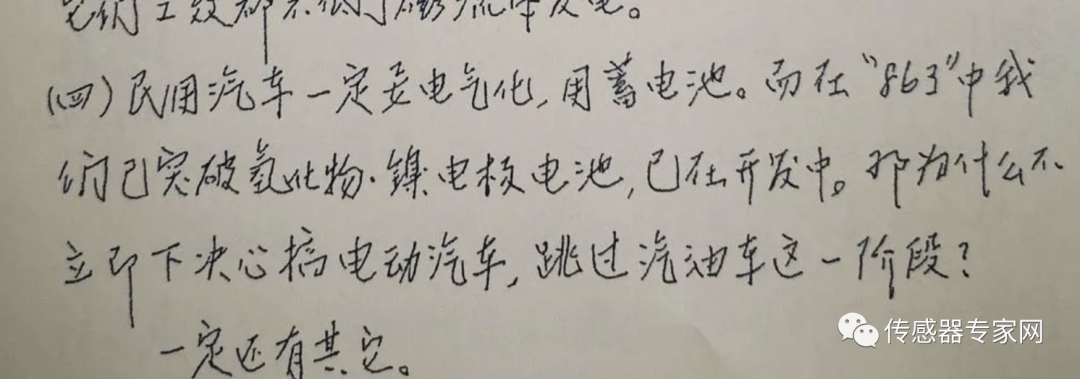 它们工效都太低了磁流体发电。
(四)民用汽车一定要电气化,用蓄电池。而在“863”中我
们已突破氢化物·镍电极电池,已在开发中。那为什么不
立即下决心搞电动汽车,跳过汽油车这一阶段?
一定还有其它。
传感器专家网